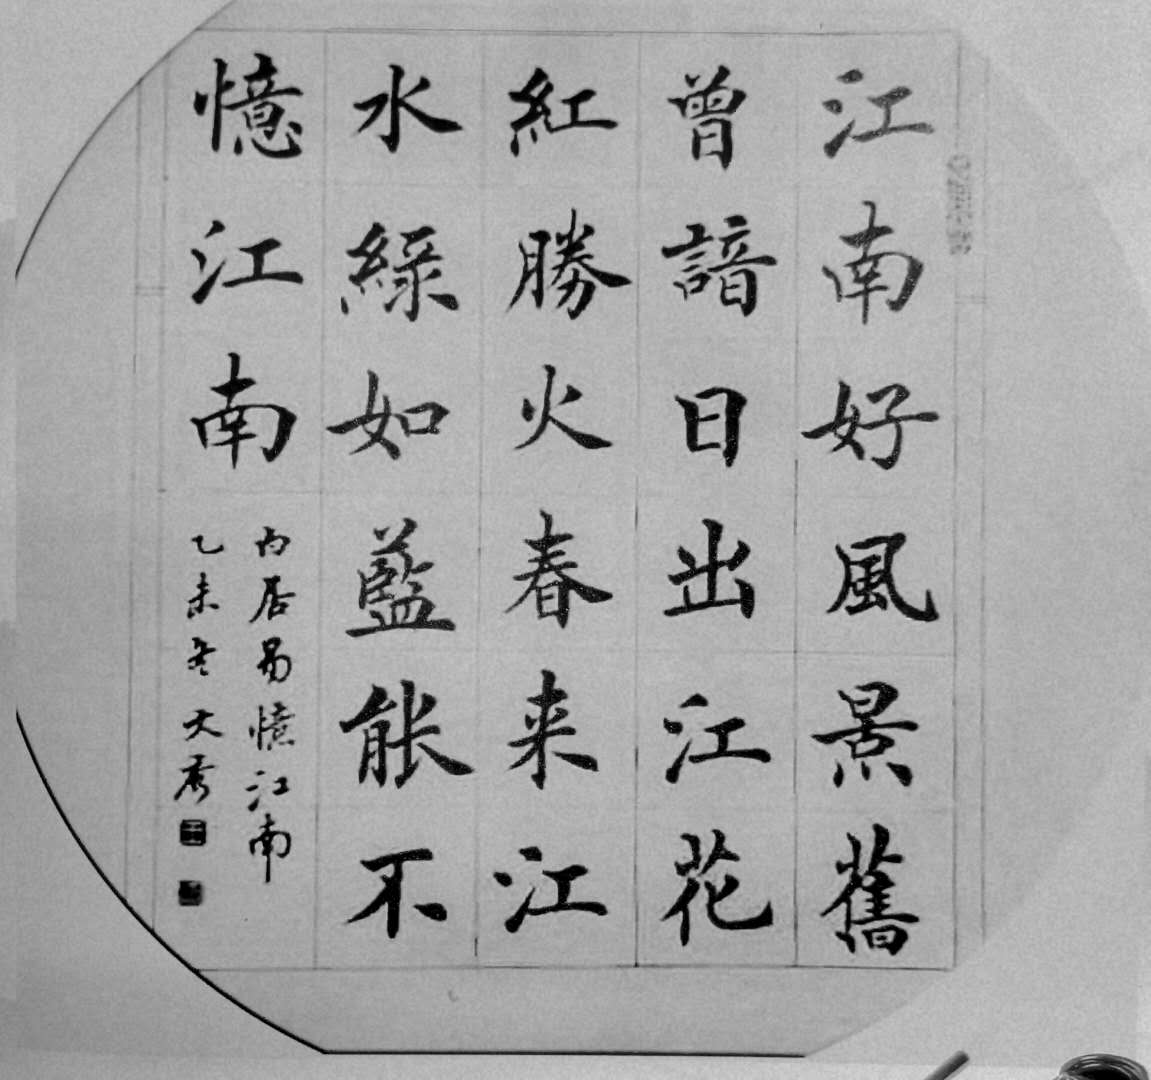 江南好風景舊
曾諳日出江花
紅勝火春来江
水綠如藍能不
憶江南
白居易憶江南
乙未冬大秀